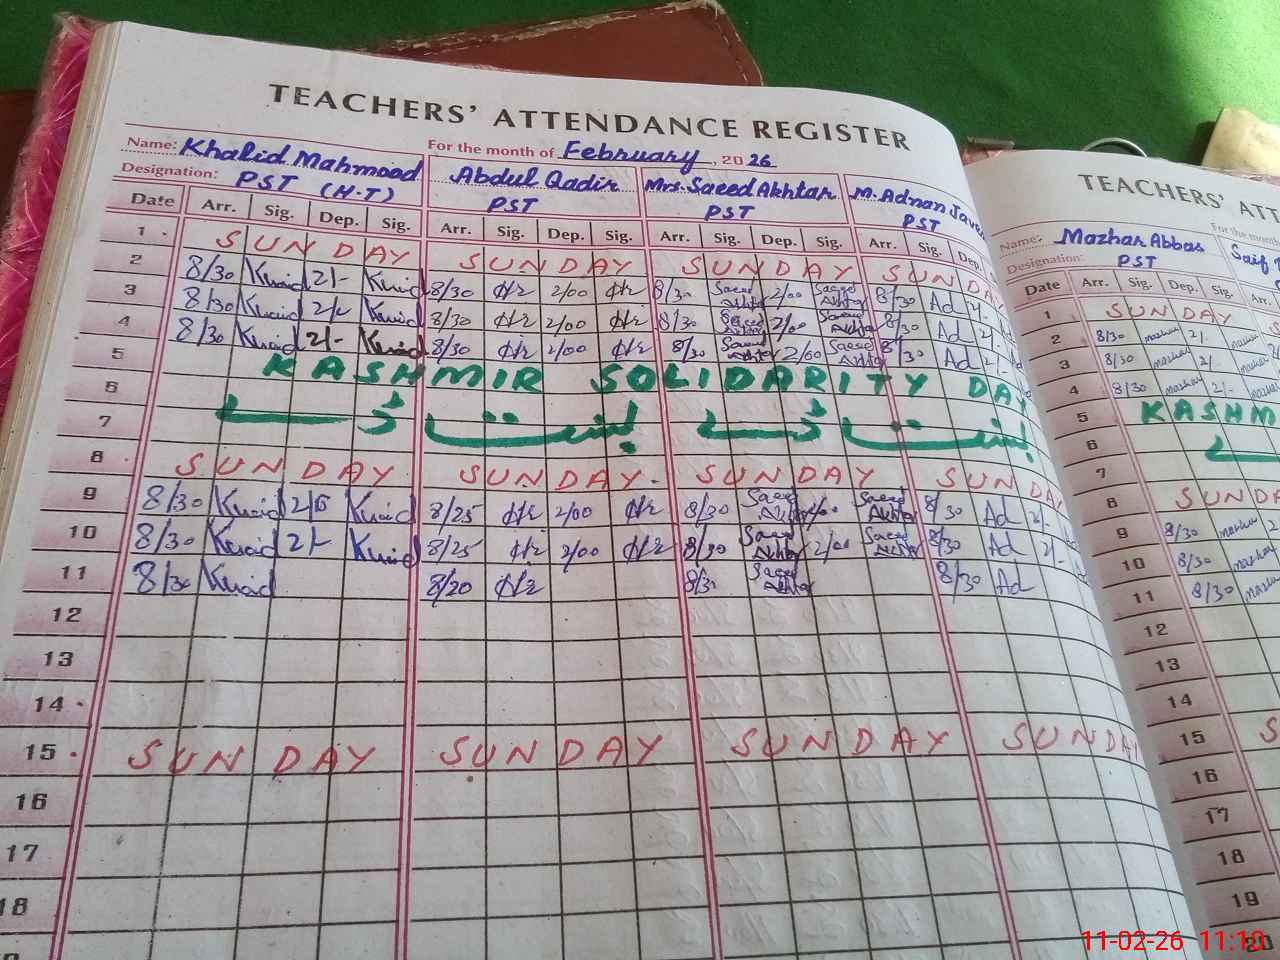 TEACHERS' ATTENDANCE REGISTER
Name: Khalid Mahmood For the month of February, 2026
Designation: PST (H.T) Abdul Qadir PST Mrs. Saeed Akhtar PST M. Adnan PST
Date Arr. Sig. Dep. Sig. Arr. Sig. Dep. Sig. Arr. Sig. Dep. Sig. Arr. Sig. Dep.
1 SUNDAY SUNDAY SUNDAY SUNDAY
2 8/30 2/- 8/30 2/00 8/30 Saeed Akhtar 2/00 Saeed Akhtar 8/30 Ad 2/-
3 8/30 2/- 8/30 2/00 8/30 Saeed Akhtar 2/00 Saeed Akhtar 8/30 Ad 2/-
4 8/30 2/- 8/30 2/00 8/30 Saeed Akhtar 2/00 Saeed Akhtar 8/30 Ad 2/-
5 KASHMIR SOLIDARITY DAY
6
7
8 SUNDAY SUNDAY SUNDAY SUNDAY
9 8/30 8/25 2/00 8/30 Saeed Akhtar Saeed Akhtar 8/30 Ad 2/-
10 8/30 2/- 8/25 2/00 8/30 Saeed Akhtar 2/00 Saeed Akhtar 8/30 Ad 2/-
11 8/30 8/20 8/30 Saeed Akhtar 8/30 Ad
12
13
14
15 SUNDAY SUNDAY SUNDAY SUNDAY
16
17
18
TEACHERS' ATT
For the mon
Name: Mazhar Abbas Saif
Designation: PST
Date Arr. Sig. Dep. Sig. Arr.
1 SUNDAY
2 8/30 mazhar 2/- mazhar
3 8/30 mazhar 2/- mazhar
4 8/30 mazhar 2/- mazhar
5 KASHM
6
7
8 SUNDA
9 8/30 mazhar
10 8/30 mazhar
11 8/30 mazhar
12
13
14
15 S
16
17
18
19
20
11-02-26 11:10